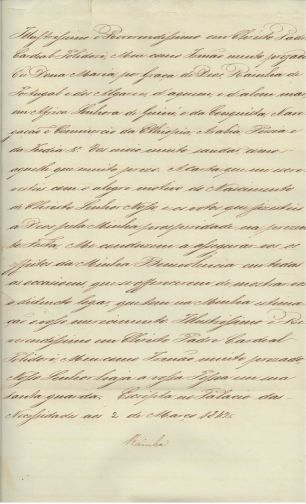 Illustrissimo e Reverendissimo em Christo Padre
Cardeal Meu como Irmão muito prezado
Eu Dona Maria, por Graça de Deos, Rainha de
Portugal e dos Algarves, d'aquem e d'alem mar
em Africa Senhora de Guiné e da Conquista, Nave
gação e Commercio da Ethiopia, Arabia, Persia e
da India &c. Vos envio muito saudar como
aquelle que muito prezo. A carta que me escre
vestes com o alegre motivo do Nascimento
de Christo Senhor Nosso, e os votos que
a Deos pela Minha prosperidade na
Me conduzem a segurar-vos os
effeitos da Minha Benevolencia em todas
as occasiões que se offerecerem de mostrar-vos
o distincto logar, que tem na Minha estima
ção o vosso merecimento. Illustrissimo e Re
verendissimo em Christo Padre Cardeal
Meu como Irmão muito prezado,
Nosso Senhor haja a vossa Pessoa em sua
santa guarda. Escripta no Palacio das
Necessidades aos 2 de Março
Rainha